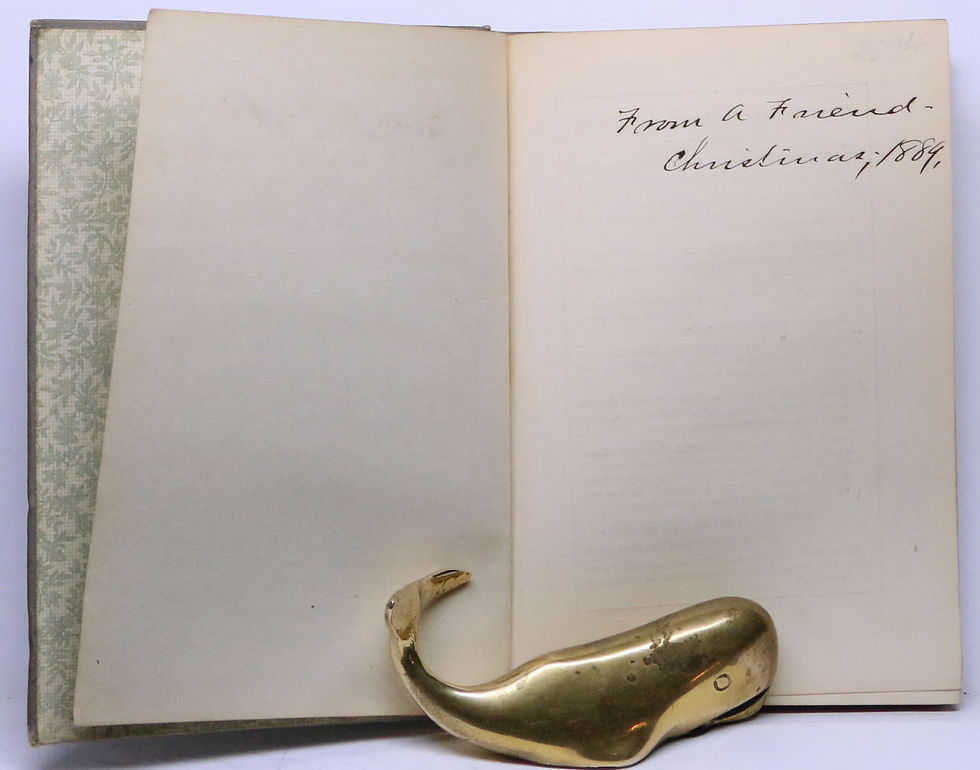 From A Friend-
Christmas, 1889.